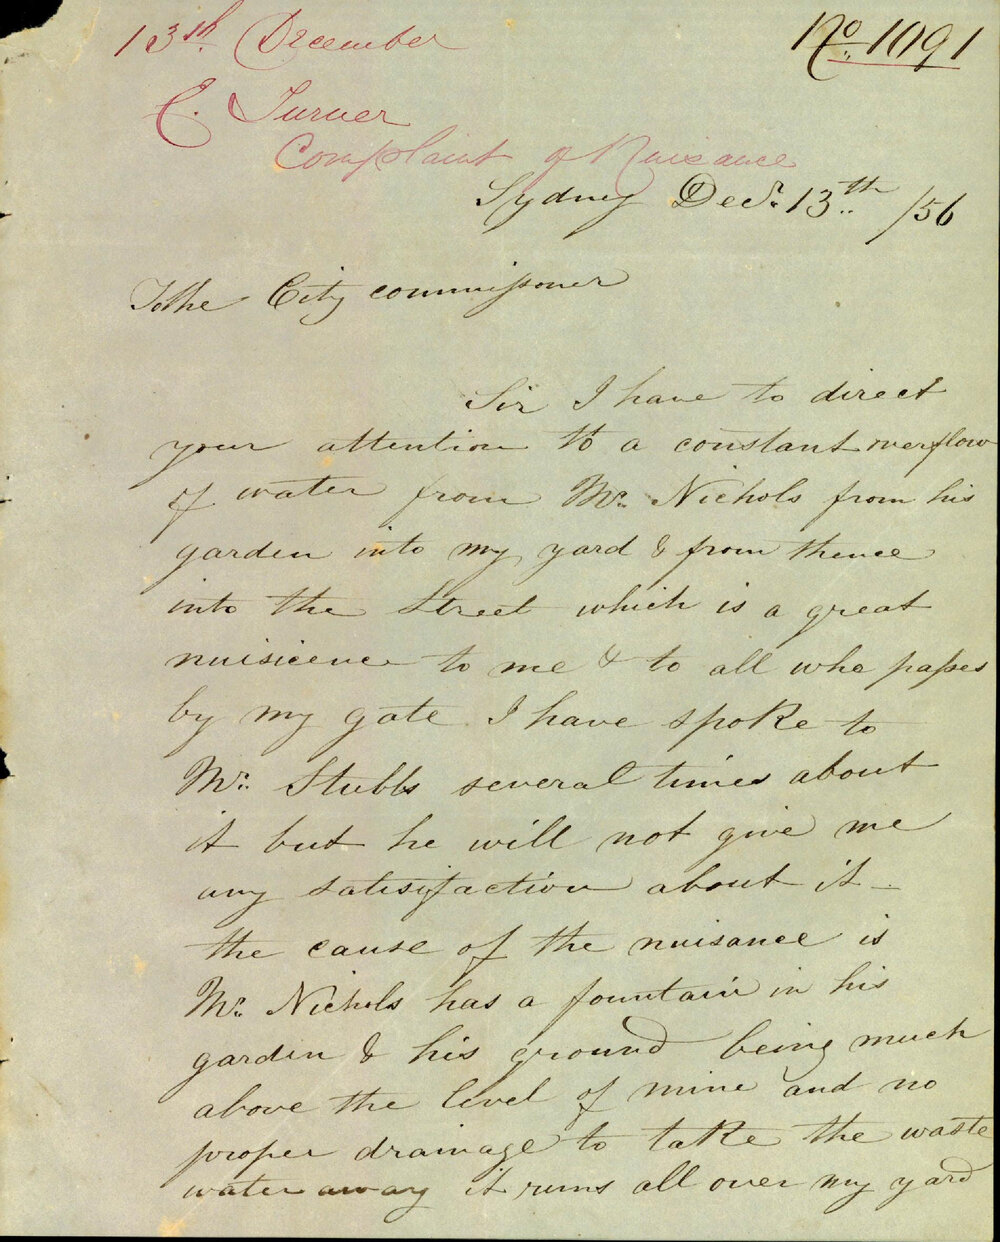 13th. December
No. 1091
E. Turner
Complaint of Nuisance
Sydney Decr. 13th /56
To the City commissioner
Sir I have to direct
your attention to a constant overflow
of water from Mr. Nichols from his
garden into my yard & from thence
into the Street which is a great
nuisicence to me & to all who passes
by my gate I have spoke to
Mr. Stubbs several times about
it but he will not give me
any satisifaction about it -
the cause of the nuisance is
Mr. Nichols has a fountain in his
garden & his ground being much
above the level of mine and no
proper drainage to take the waste
water away it runs all over my yard